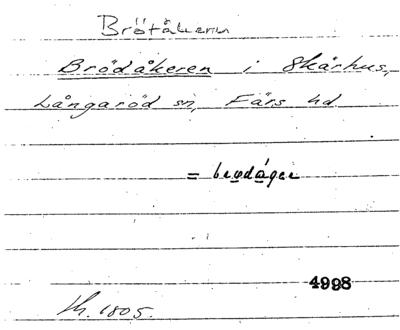 Brötåkern
Brödåkeren i Skårhus,
Långaröd sn, Färs hd
= brødåger
4998
Lh. 1805.